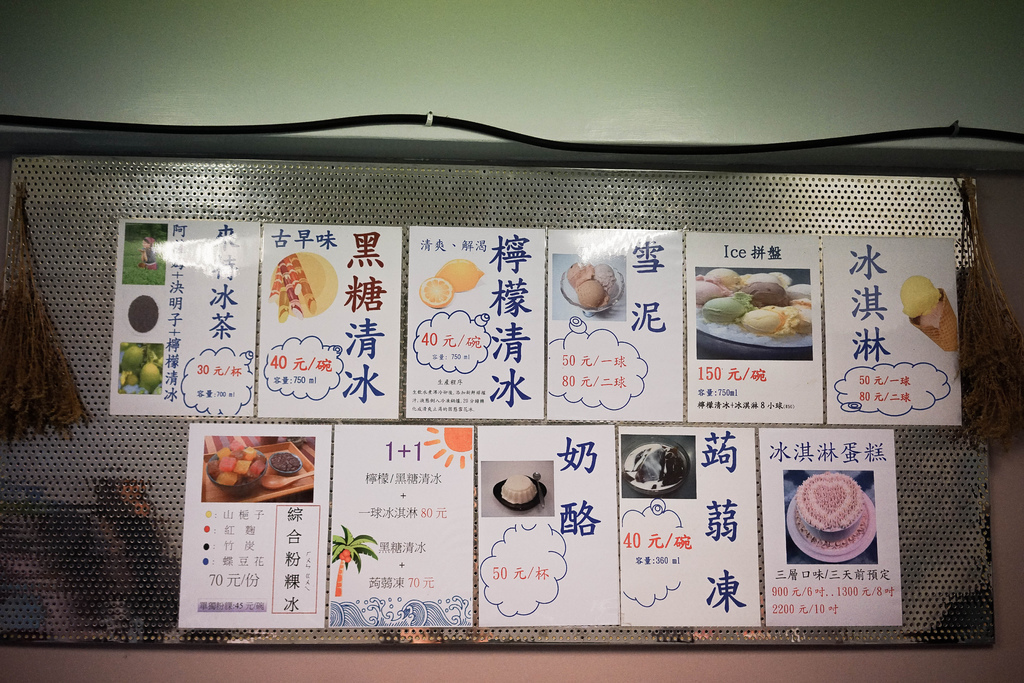 冰茶
決明子+檸檬清冰
30 元/杯
容量:700 ml
古早味
黑糖清冰
40 元/碗
容量:750 ml
清爽、解渴
檸檬清冰
40 元/碗
容量: 750 ml
生產程序
雪泥
50 元/一球
80 元/二球
Ice 拼盤
150 元/碗
容量:750ml
檸檬清冰+冰淇淋 8 小球
冰淇淋
50 元/一球
80 元/二球
綜合粉粿冰
: 山梔子
: 紅麴
: 竹炭
: 蝶豆花
70 元/份
單獨粉粿:45 元/碗
1+1
檸檬/黑糖清冰
+
一球冰淇淋 80 元
黑糖清冰
+
蒟蒻凍 70 元
奶酪
50 元/杯
蒟蒻凍
40 元/碗
容量:360 ml
冰淇淋蛋糕
三層口味/三天前預定
900 元/6 吋..1300 元/8 吋
2200 元/10 吋